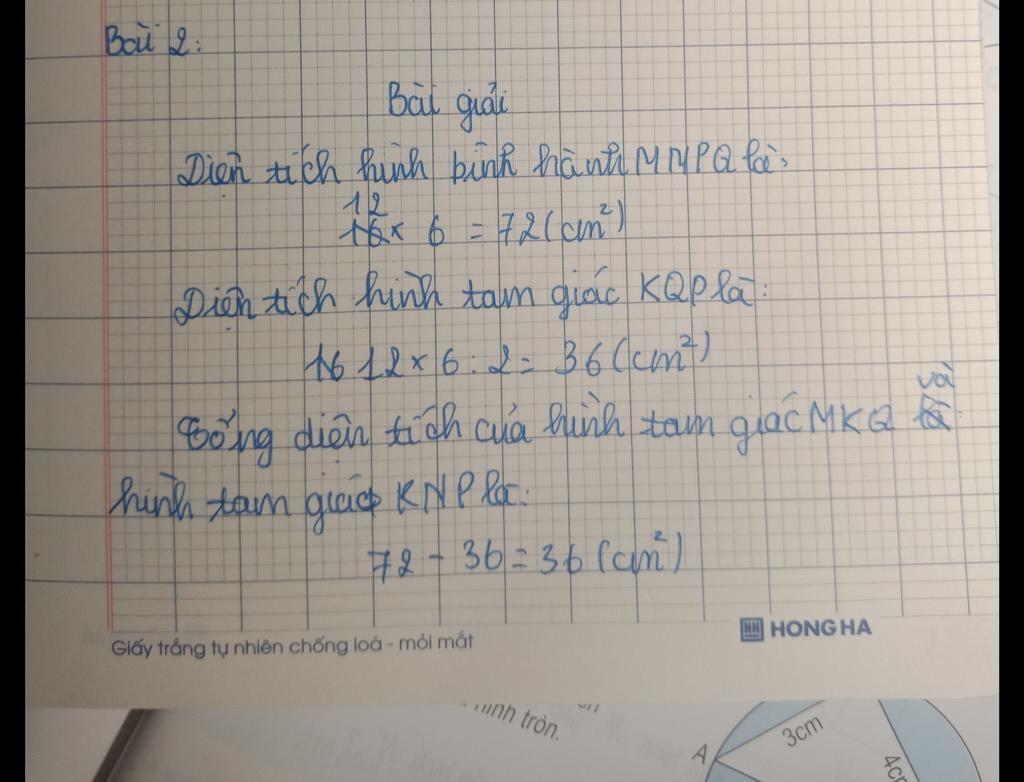 Bài 2:
Bài giải
Diện tích hình bình hành MNPQ là:
12
16 × 6 = 72 (cm²)
Diện tích hình tam giác KQP là:
16 12 × 6 : 2 = 36 (cm²)
và
Tổng diện tích của hình tam giác MKQ là
hình tam giác KNP là:
72 - 36 = 36 (cm²)
HONG HA
Giấy trắng tự nhiên chống loá - mỏi mắt
hình tròn.
A
3cm